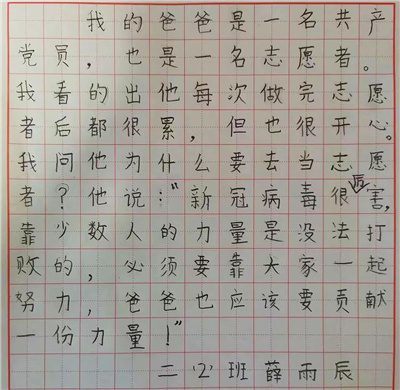 我的爸爸是一名共产
党员，也是一名志愿者。
我看的出他每次做完志愿
者后都很累，但也很开心。
我问他为什么要去当志愿
者？他说：“新冠病毒很厉害，
靠少数人的力量是没法打
败的，必须要靠大家一起
努力，爸爸也应该要贡献
一份力量！”
二（2）班薛雨辰